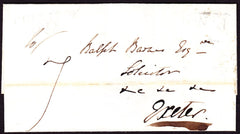 To/
Ralph Barnes Esqre
Solicitor
&c &c &c
Exeter.
7